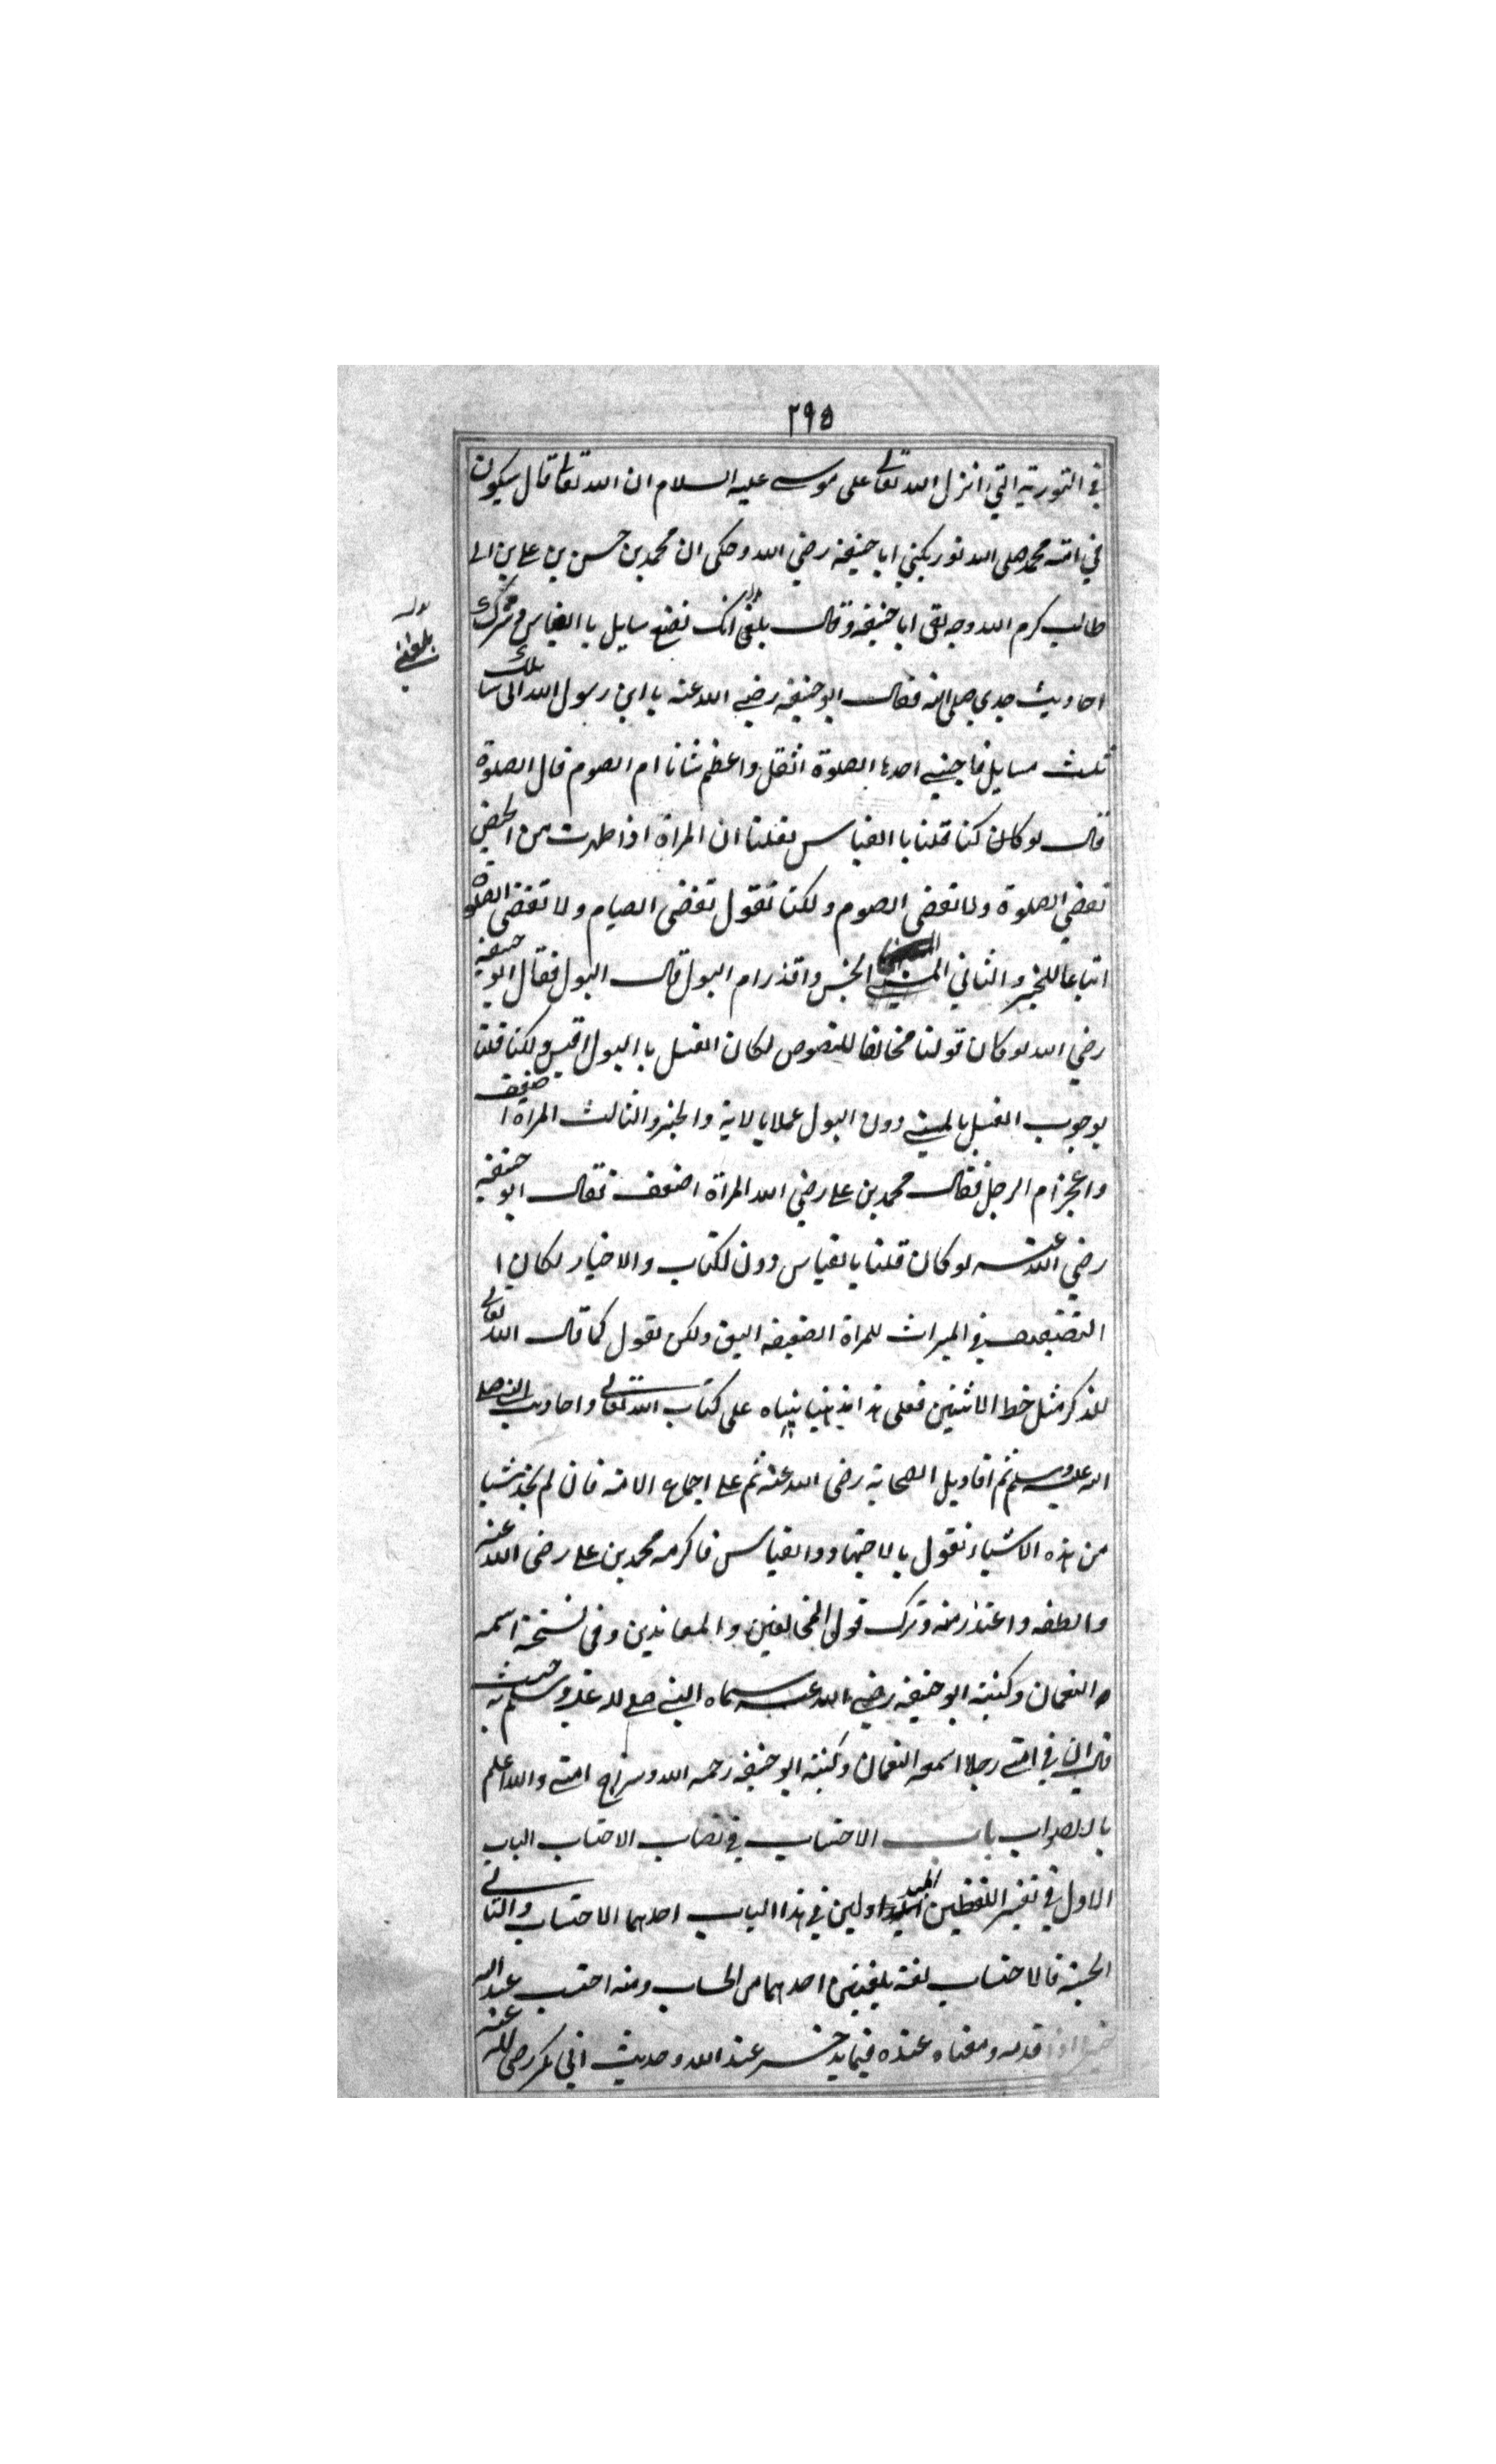 ٢٩٥
في التورية التي انزل الله تعالى على موسى عليه السلام ان الله تعالى قال سيكون
في امة محمد صلى الله نور يكني ابا حنيفة رضي الله وحكى ان محمد بن حسن بن علي بن ابي
طالب كرم الله وجه لقى ابا حنيفة وقال بلغى انك تضع سايل باالقياس وتترك
بلغني
احاديث جدي صلى الله فقال ابو حنيفة رضي الله عنه يا ابن رسول الله انى سائلك
ثلث مسايل فاجبني احدها الصلوة اثقل واعظم شانا ام الصوم قال الصلوة
قال لو كان كنا قلنا باالقياس لقلنا ان المراة اذا طهرت من الحيض
تقضي الصلوة ولا تقضى الصوم ولكن نقول تقضى الصيام ولا تقضى الصلوة
اتباعا للخبر والثاني المني انجس واقذر ام البول قال البول فقال ابو حنيفة
رضي الله لو كان قولنا مخالفا للنصوص لكان الغسل باالبول اقيس ولكنا قلنا
بوجوب الغسل بالمني دون البول عملا بالاية والخبر والثالث المراة اضعف
واعجز ام الرجل فقال محمد بن علي رضي الله المراة اضعف فقال ابو حنيفة
رضي الله عنه لو كان قلنا بالقياس دون لكتاب والاخبار لكان ا
التضعيف في الميراث للمراة الضعيفة اليق ولكن نقول كما قال الله تعالى
للذكر مثل حظ الانثيين فعلى هذا مذهبنا بنيناه على كتاب الله تعالى واحاديث النبي صلى
الله عليه وسلم ثم اقاويل الصحابة رضى الله عنه ثم على اجماع الامة فان لم نجد شيا
من هذه الاشياء نقول بالاجتهاد والقياس فاكرمه محمد بن علي رضى الله عنه
والطفه واعتذر منه وترك قول المخالفين والمعاندين وفى نسخة اسمه
النعمان وكنيته ابو حنيفة رضي الله عنه سماه النبي صلى الله عليه وسلم به حيث
قال ان في امتي رجلا اسمه النعمان وكنيته ابو حنيفة رحمه الله وسراج امتي والله اعلم
بالصواب باب الاحتساب في نصاب الاحتساب الباب
الاول في تفسير اللفظين المتداولين في هذا الباب احدهما الاحتساب والثاني
الحسبة فالاحتساب لغة بمعنيين احدهما من الحساب ومنه احتسب عند الله
خيرا اذا قدمه ومعناه عنده فيما يدخر عند الله وحديث ابي بكر رضى الله عنه